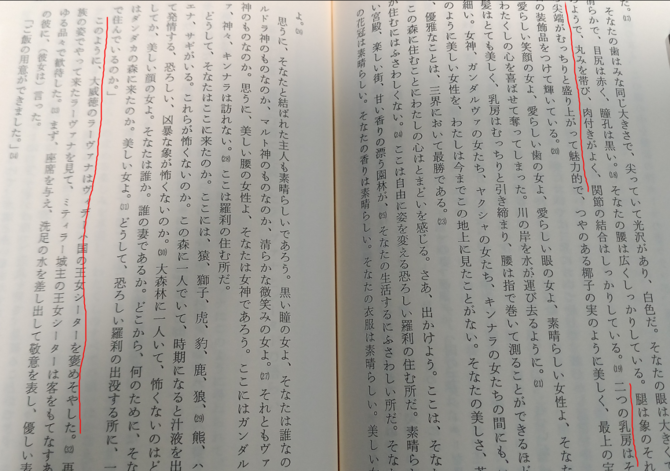 そなたの歯はみな同じ大きさで、尖っていて光沢があり、白色だ。そなたの眼は大き
清らかで、目尻は赤く、瞳孔は黒い。(18) そなたの腰は広くしっかりしている。腿は象のそ
ようで、丸みを帯び、肉付きがよく、関節の結合はしっかりしている。(19) 二つの乳房はい
尖端がむっちりと盛り上がって魅力的で、つやのある椰子の実のように美しく、最上の宝
の装飾品をつけて輝いている。(20)
愛らしい笑顔の女よ、愛らしい歯の女よ、愛らしい眼の女よ、素晴らしい女性よ、そな
わたしの心を喜ばせて奪ってしまった。川の岸を水が運び去るように。(21)
髪はとても美しく、乳房はむっちりと引き締まり、腰は指で巻いて測ることができるほど
細い。女神、ガンダルヴァの女たち、ヤクシャの女たち、キンナラの女たちの間にも、
のように美しい女性を、わたしは今までこの地上に見たことがない。そなたの美しさ、
、優雅なことは、三界において最勝である。(23)
この森に住むことにわたしの心はとまどいを感じる。さあ、出かけよう。ここは、そな
が住むにはふさわしくない。(24) ここは自由に姿を変える恐ろしい羅刹の住む所だ。素晴ら
い宮殿、楽しい街、甘い香りの漂う園林が、(25) そなたの生活するにふさわしい所だ。そな
の花冠は素晴らしい。そなたの香りは素晴らしい。そなたの衣服は素晴らしい。美しい
よ。(26)
思うに、そなたと結ばれた主人も素晴らしいであろう。黒い瞳の女よ、そなたは誰なの
ルドラ神のものなのか、マルト神のものなのか、清らかな微笑みの女よ。(27) それともヴァ
神のものなのか。思うに、美しい腰の女性よ、そなたは女神であろう。ここにはガンダル
ァ、神々、キンナラは訪れない。(28) ここは羅刹の住む所だ。
どうして、そなたはここに来たのか。ここには、猿、獅子、虎、豹、鹿、狼、(29) 熊、ハ
エナ、サギがいる。これらが怖くないのか。この森に一人でいて、時期になると汁液を出
て発情する、恐ろしい、凶暴な象が怖くないのか。(30) 大森林に一人いて、怖くないのはど
してか、美しい顔の女よ。そなたは誰か。誰の妻であるか。どこから、何のために、そな
はダンダカの森に来たのか。美しい女よ。(31) どうして、恐ろしい羅刹の出没する所に、一
で住んでいるのか。」
このように、大威徳のラーヴァナはヴィデーハ国の王女シーターを褒めそやした。(32) 再
族の姿でやって来たラーヴァナを見て、ミティラー城主の王女シーターは客をもてなすあ
ゆる品々で歓待した。(33) まず、座席を与え、洗足の水を差し出して敬意を表し、優しい表
の彼に、(彼女は)言った。
「ご飯の用意ができました。」(34)